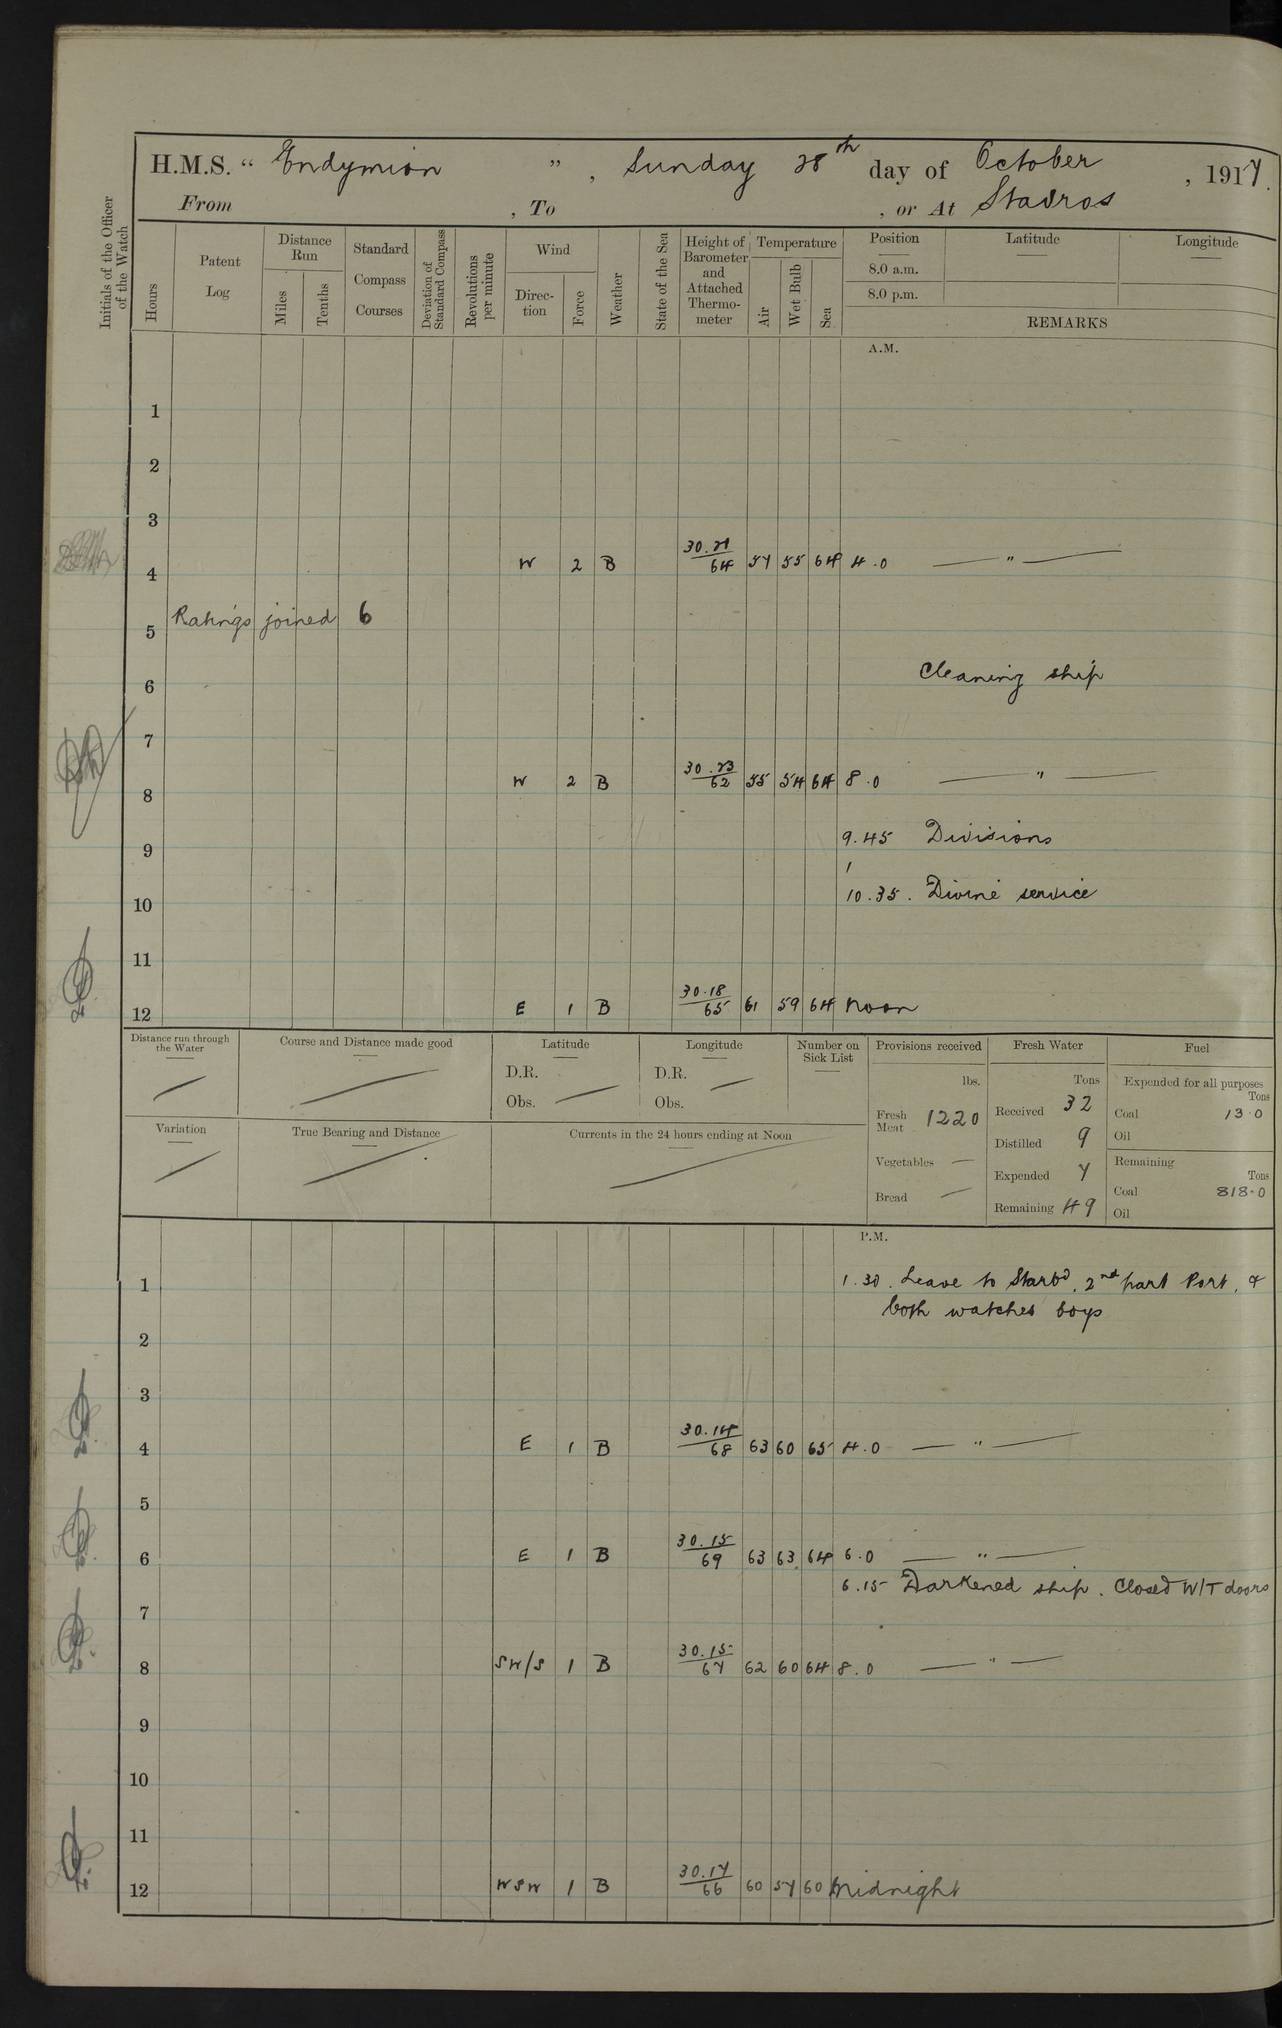 H.M.S. “ Endymion ” , Sunday 28th day of October , 1917.
From , To , or At Stavros
Initials of the Officer of the Watch
Hours
Patent Log
Distance Run
Miles
Tenths
Standard Compass Courses
Deviation of Standard Compass
Revolutions per minute
Wind
Direc-tion
Force
Weather
State of the Sea
Height of Barometer and Attached Thermo-meter
Temperature
Air
Wet Bulb
Sea
Position
Latitude
Longitude
8.0 a.m.
8.0 p.m.
REMARKS
A.M.
1
2
3
4 W 2 B 30.21/64 57 55 64 4.0 — " —
5 Ratings joined 6
6 Cleaning ship
7
8 W 2 B 30.23/62 55 54 64 8.0 — " —
9 9.45 Divisions
10 10.35. Divine service
11
12 E 1 B 30.18/65 61 59 64 Noon
Distance run through the Water
Course and Distance made good
Latitude
D.R.
Obs.
Longitude
D.R.
Obs.
Number on Sick List
Variation
True Bearing and Distance
Currents in the 24 hours ending at Noon
Provisions received
lbs.
Fresh Meat 1220
Vegetables —
Bread —
Fresh Water
Tons
Received 32
Distilled 9
Expended 7
Remaining 49
Fuel
Expended for all purposes
Tons
Coal 13.0
Oil
Remaining
Tons
Coal 818.0
Oil
P.M.
1 1.30. Leave to Starbd, 2nd part Port, &
both watches boys
2
3
4 E 1 B 30.14/68 63 60 65 4.0 — " —
5
6 E 1 B 30.15/69 63 63 64 6.0 — " —
6.15 Darkened ship. Closed W/T doors
7
8 SW/S 1 B 30.15/67 62 60 64 8.0 — " —
9
10
11
12 WSW 1 B 30.17/66 60 57 60 Midnight